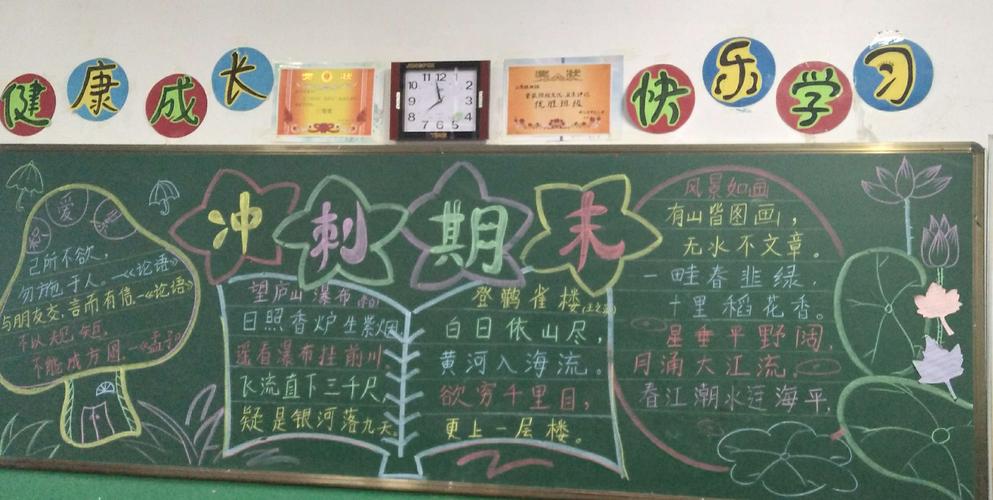 健康成长
奖状
优胜班级
快乐学习
12
11
1
10
2
9
3
8
4
7
6
5
冲刺期末
爱
己所不欲，
勿施于人。—《论语》
与朋友交，言而有信—《论语》
不以规矩，
不能成方圆。—《孟子》
望庐山瀑布
日照香炉生紫烟
遥看瀑布挂前川
飞流直下三千尺
疑是银河落九天
登鹳雀楼
白日依山尽，
黄河入海流。
欲穷千里目，
更上一层楼。
风景如画
有山皆图画，
无水不文章。
一畦春韭绿，
十里稻花香。
星垂平野阔，
月涌大江流。
春江潮水连海平，